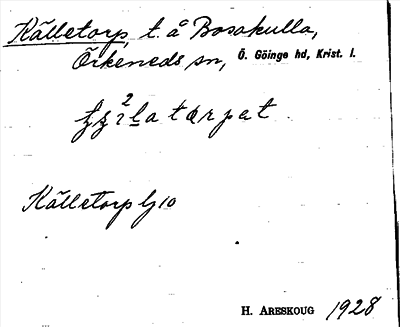 Källetorp, t. å Bosakulla,
Örkeneds sn, Ö. Göinge hd, Krist. l.
Källetorp lj 10
H. Areskoug 1928